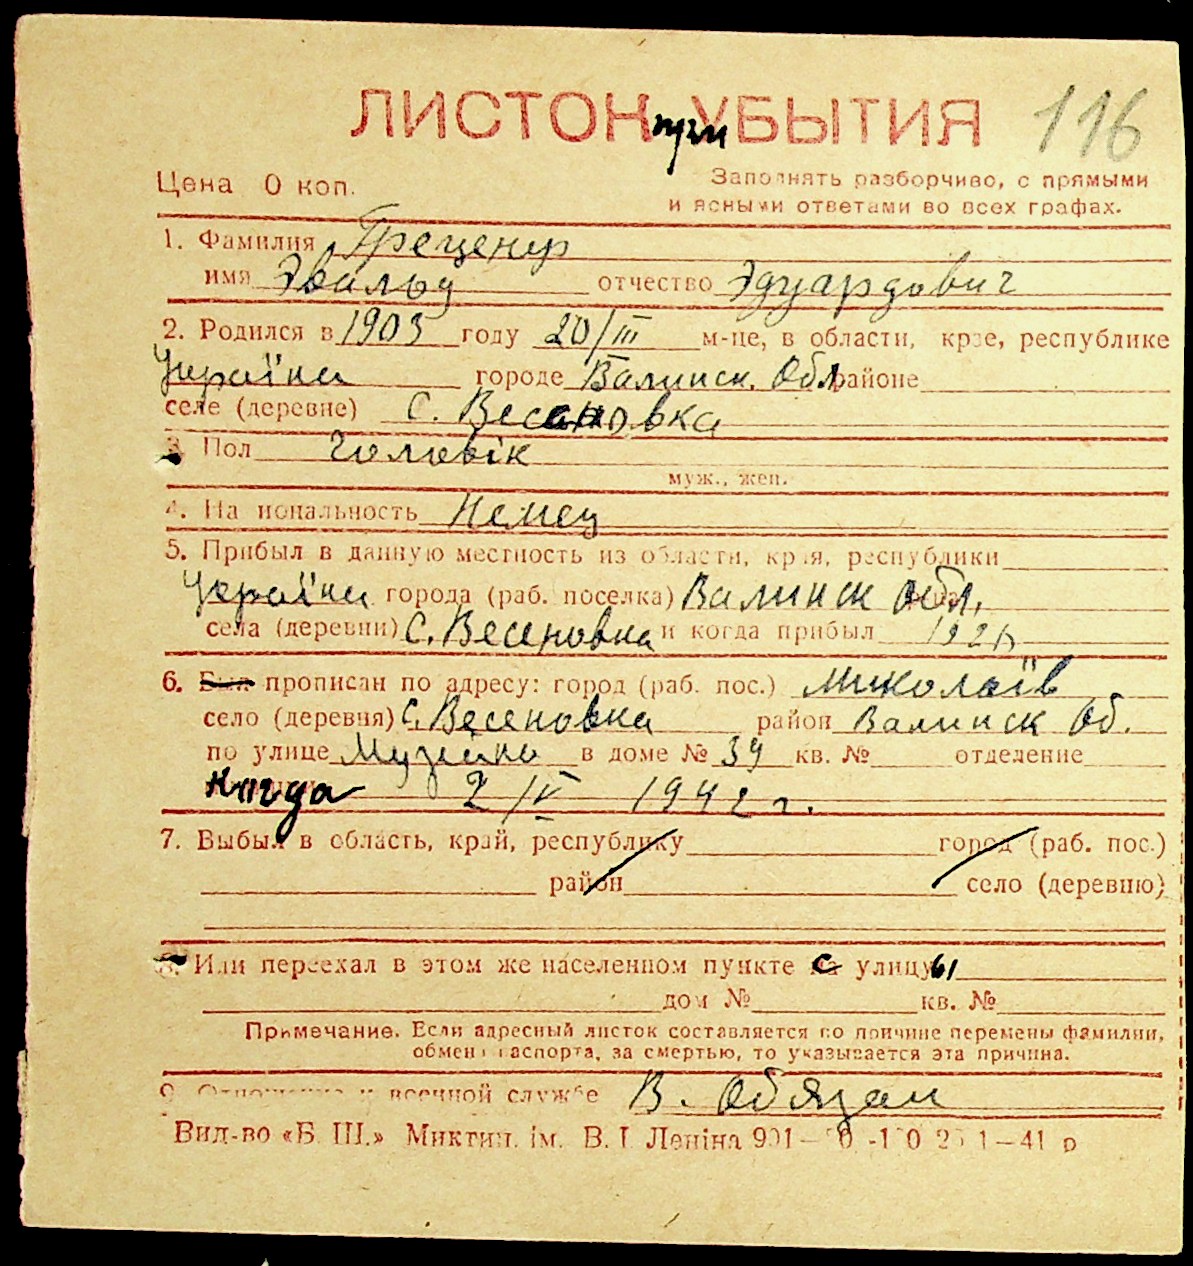 ЛИСТОК при УБЫТИЯ 116
Цена 0 коп. Заполнять разборчиво, с прямыми
и ясными ответами во всех графах.
1. Фамилия Греценир
имя Эвальд отчество Эдуардович
2. Родился в 1903 году 20/III м-це, в области, крае, республике
Україна городе Валинск. Обл. районе
селе (деревне) С. Весеновка
3. Пол Чоловік
муж., жен.
4. Национальность Немец
5. Прибыл в данную местность из области, края, республики
Україна города (раб. поселка) Валинск Обл.
села (деревни) С. Весеновка и когда прибыл
6. Был прописан по адресу: город (раб. пос.) Миколаїв
село (деревня) С. Весеновка район Валинск Об.
по улице Музейна в доме № 39 кв. № отделение
когда 2/IV 1942 г.
7. Выбыл в область, край, республику город (раб. пос.)
район село (деревню)
8. Или переехал в этом же населенном пункте с улицы
дом № кв. №
Примечание. Если адресный листок составляется по причине перемены фамилии,
обмена паспорта, за смертью, то указывается эта причина.
9. Отношение к военной службе В. Обязан
Вид-во «Б. Ш.» Миктип. ім. В. І Леніна 41 р